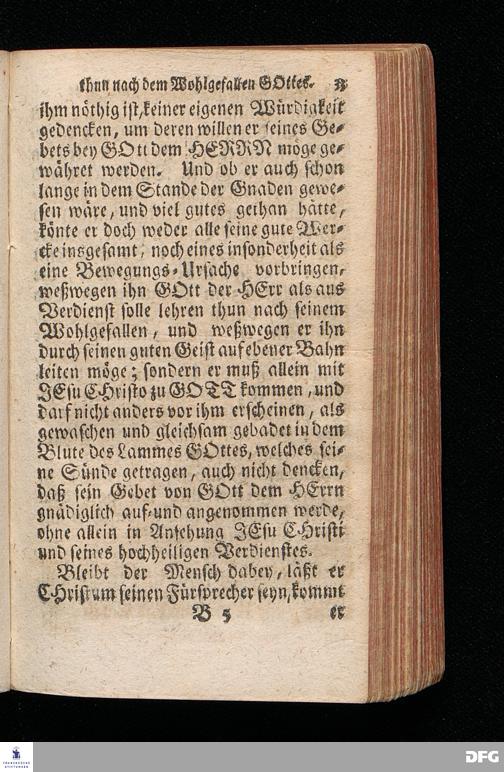 thun nach dem Wohlgefallen GOttes. 33
ihm nöthig ist, keiner eigenen Würdigkeit
gedencken, um deren willen er seines Ge-
bets bey GOtt dem HERRN möge ge-
währet werden. Und ob er auch schon
lange in dem Stande der Gnaden gewe-
sen wäre, und viel gutes gethan hätte,
könte er doch weder alle seine gute Wer-
cke insgesamt, noch eines insonderheit als
eine Bewegungs-Ursache vorbringen,
weßwegen ihn GOtt der HErr als aus
Verdienst solle lehren thun nach seinem
Wohlgefallen, und weßwegen er ihn
durch seinen guten Geist auf ebener Bahn
leiten möge; sondern er muß allein mit
JEsu CHristo zu GOTT kommen, und
darf nicht anders vor ihm erscheinen, als
gewaschen und gleichsam gebadet in dem
Blute des Lammes GOttes, welches sei-
ne Sünde getragen, auch nicht dencken,
daß sein Gebet von GOtt dem HErrn
gnädiglich auf- und angenommen werde,
ohne allein in Ansehung JEsu CHristi
und seines hochheiligen Verdienstes.
Bleibt der Mensch dabey, läßt er
CHristum seinen Fürsprecher seyn, kommt
B 5 er
FRANCKESCHE
STIFTUNGEN
DFG